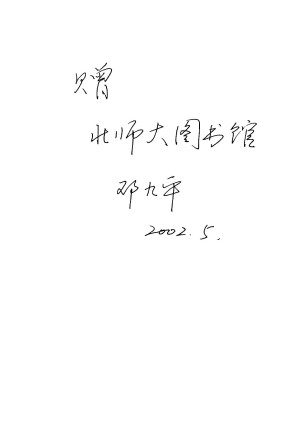 赠
北师大图书馆
邓九平
2002.5.